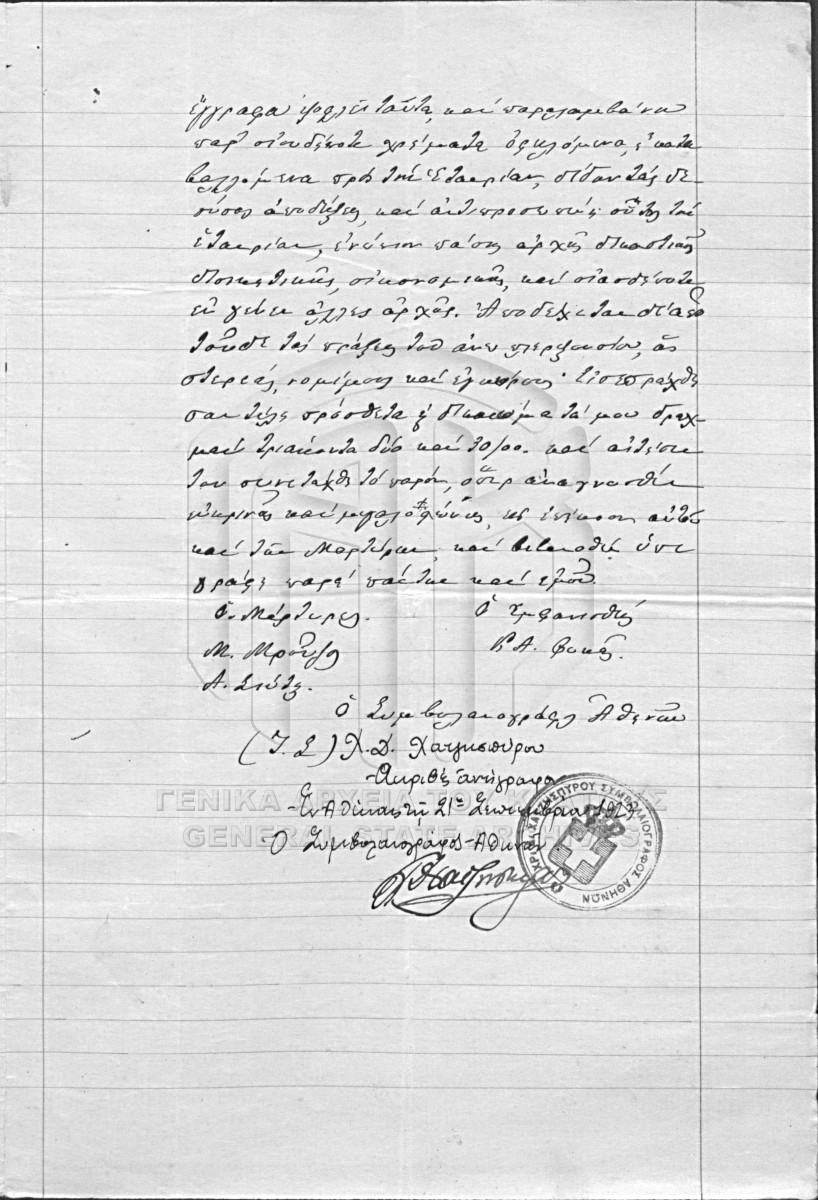 ἔγγραφα ταῦτα, καὶ παραλαμβάνῃ
παρ' οἱουδήποτε χρήματα ὀφειλόμενα, ἢ κατα
βαλλόμενα πρὸς τὴν Ἑταιρίαν, δίδων τὰς δε
ούσας ἀποδείξεις, καὶ ἀντιπροσωπεύῃ οὕτω τὴν
Ἑταιρίαν, ἐνώπιον πάσης ἀρχῆς δικαστικῆς
διοικητικῆς, οἰκονομικῆς, καὶ οἱασδήποτε
ἐν γένει ἄλλης ἀρχῆς. Ἀποδέχεται δὲ ἀπὸ
τοῦδε τὰς πράξεις τοῦ ἄνω πληρεξουσίου, ὡς
στερεάς, νομίμους καὶ ἐγκύρους. Εἰσεπράχθη
σαν τέλη πρόσθετα δικαιώματά μου δραχ
μαὶ τριάκοντα δύο καὶ 30/00. καὶ
συνετάχθη τὸ παρόν, ὅπερ ἀναγνωσθὲν
εὐκρινῶς καὶ μεγαλοφώνως, εἰς ἐπήκοον αὐτοῦ
καὶ τῶν Μαρτύρων, καὶ βεβαιωθὲν ὑπε
γράφη παρὰ πάντων καὶ ἐμοῦ.
Οἱ Μάρτυρες. Ὁ Ἐμφανισθείς
Μ. Μ. Α. Φωκᾶς.
Α.
Ὁ Συμβολαιογράφος Ἀθηνῶν
(Τ.Σ) Χ. Δ. Χατζησπύρου
Ἀκριβὲς ἀντίγραφον
Ἐν Ἀθήναις τῇ 21ῃ Σεπτεμβρίου 1923
Ὁ Συμβολαιογράφος Ἀθηνῶν
ΧΑΤΖΗΣΠΥΡΟΥ ΣΥΜΒΟΛΑΙΟΓΡΑΦΟΣ ΑΘΗΝΩΝ
ΓΕΝΙΚΑ ΑΡΧΕΙΑ ΤΟΥ ΚΡΑΤΟΥΣ
GENERAL STATE ARCHIVES